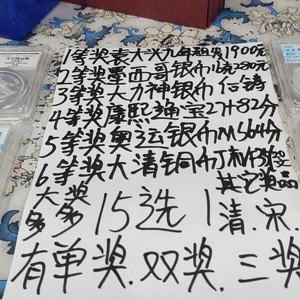 1等奖袁大头九年粗发1900元
2等奖墨西哥银币16克280元
3等奖大力神银币信铸
4等奖康熙通宝27+82分
5等奖奥运银币M564分
6等奖大清铜币丁末
其它奖品
大奖
多多
15选1
清.宋.
有单奖.双奖.三奖